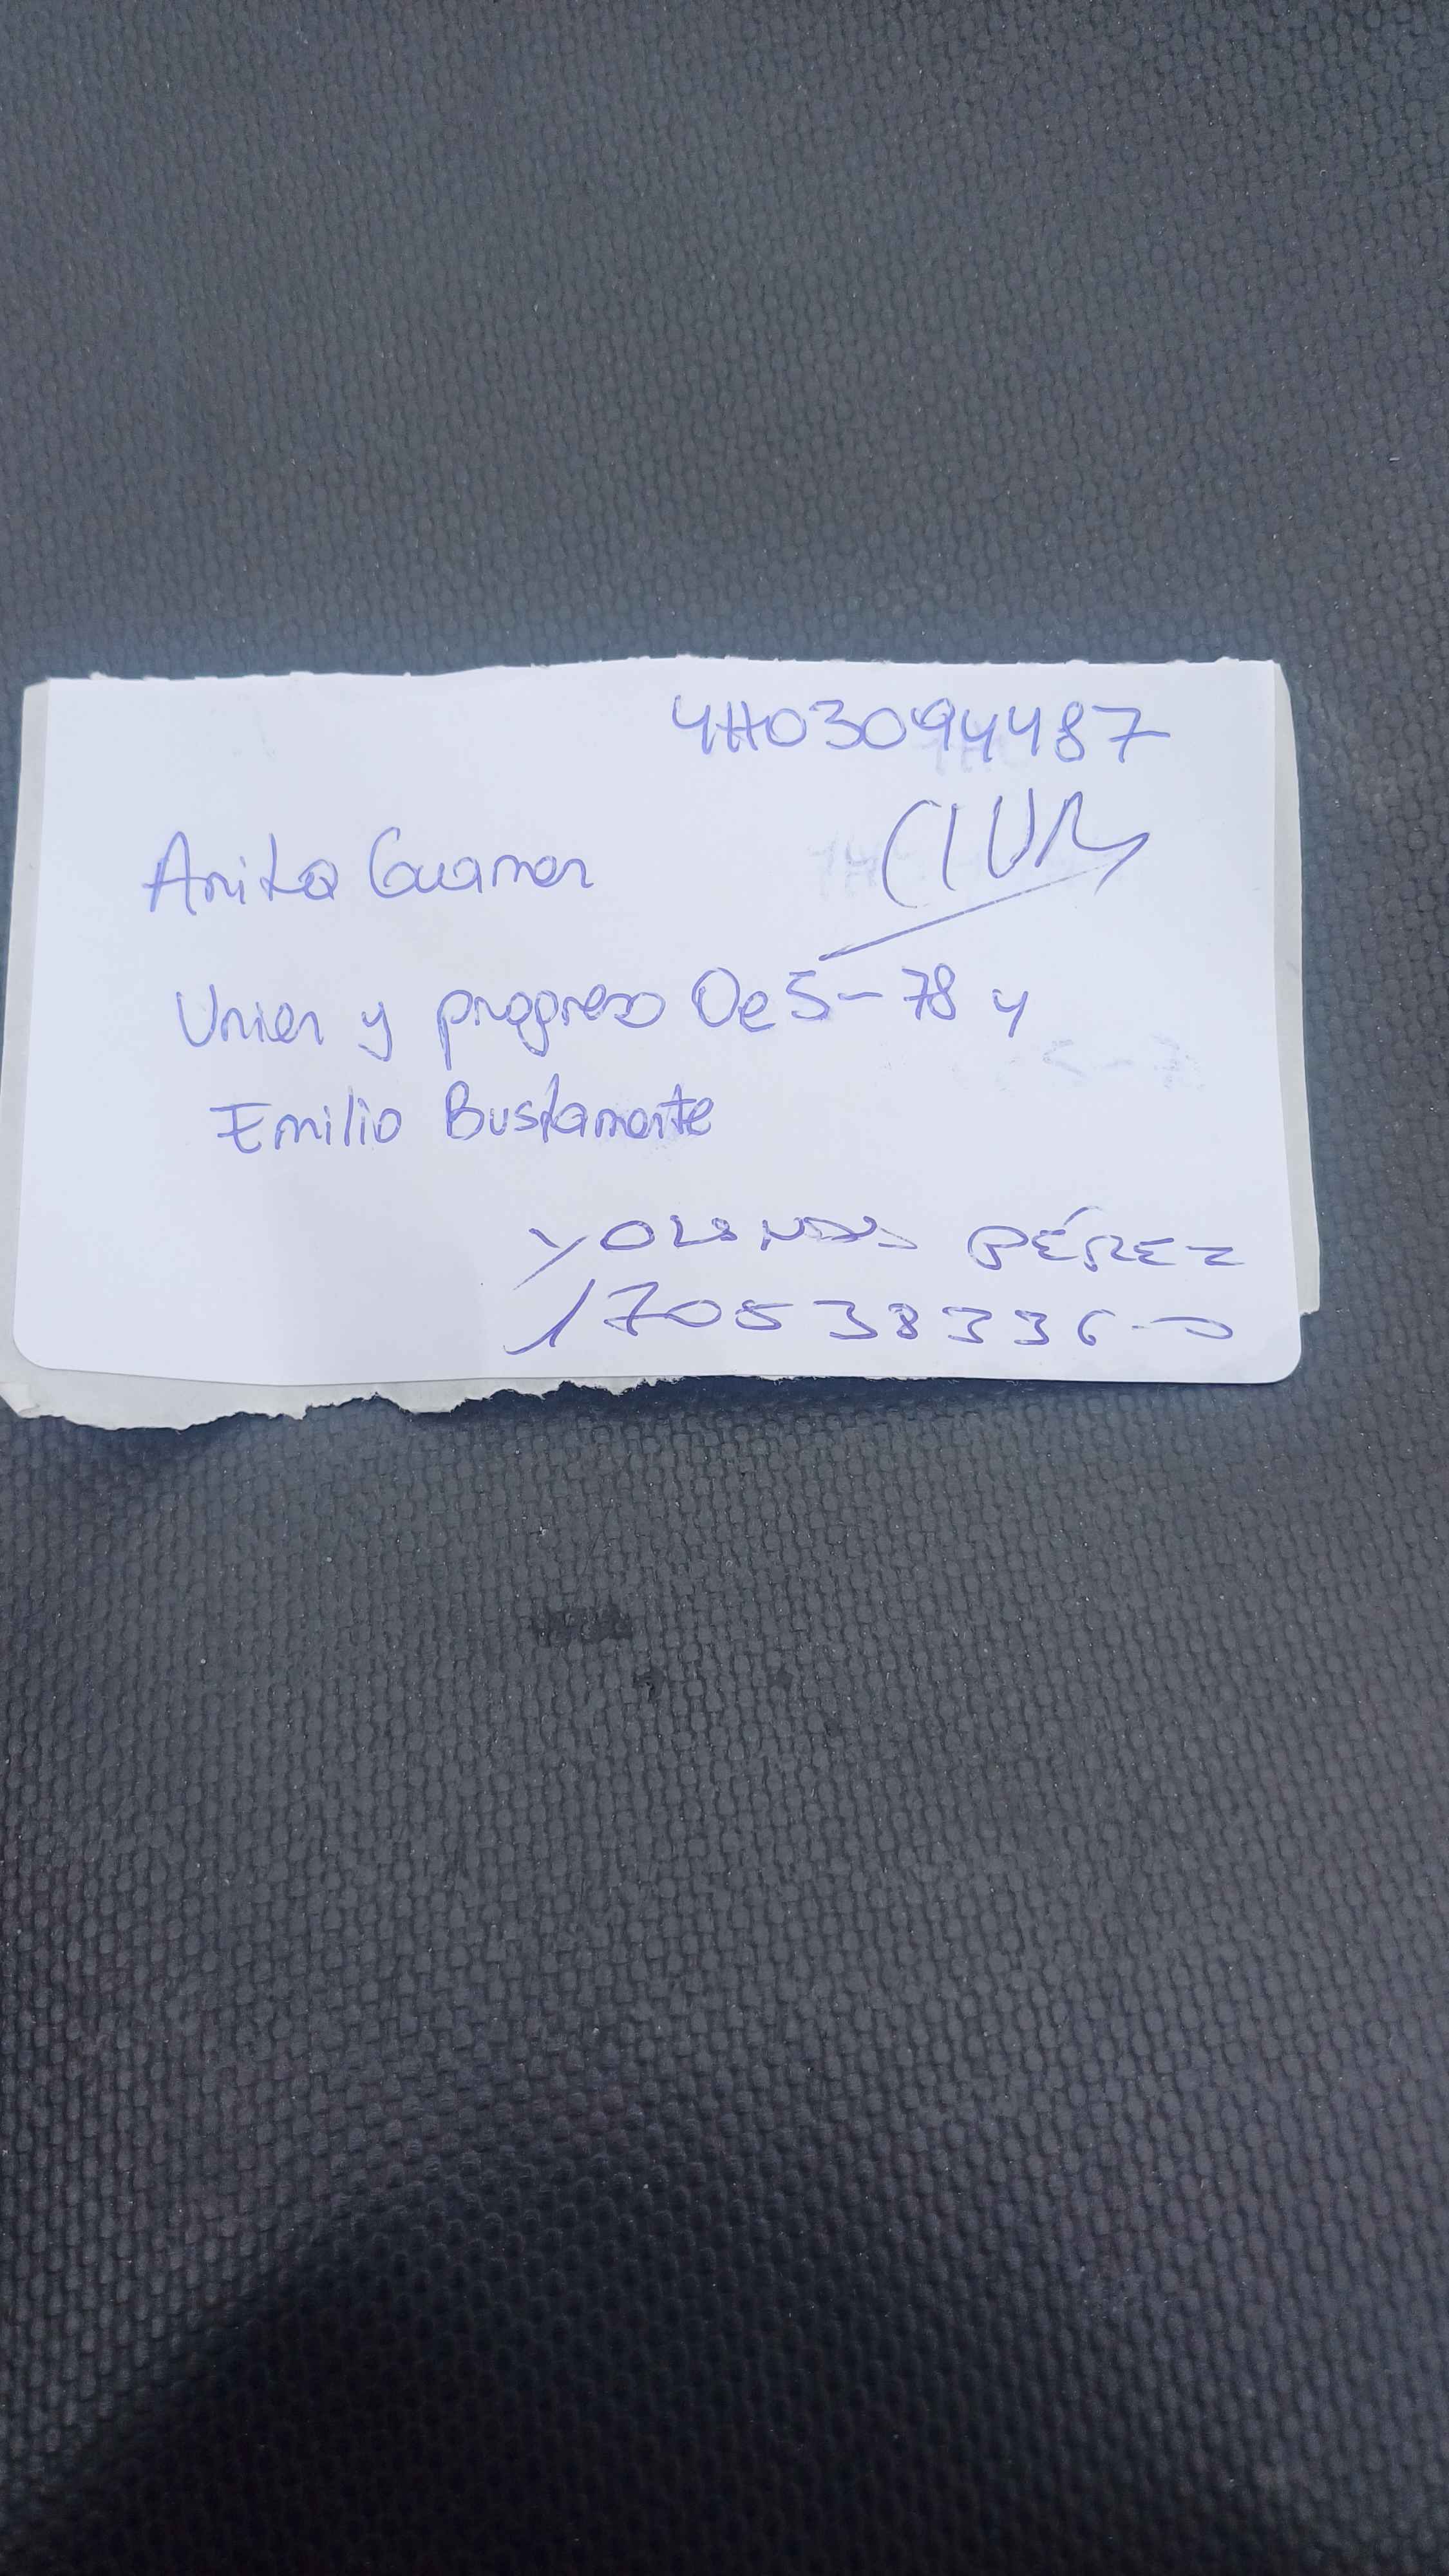 4H03094487
Anita Guaman
Union y progreso Oe5-78 y
Emilio Bustamante
YOLANDA PÉREZ
170538336-0